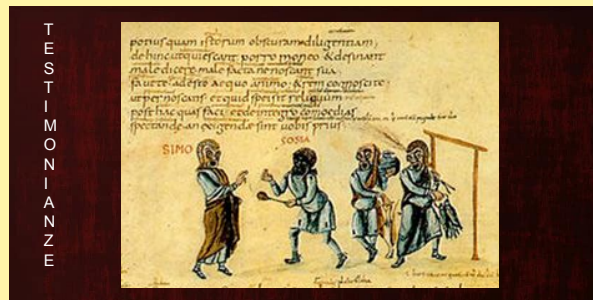 TESTIMONIANZE
potius quam istorum obscuram diligentiam,
dehinc ut quiescant porro moneo & desinant
male dicere male facta ne noscant sua.
favete adeste aequo animo & rem cognoscite
ut pernoscatis ecquid spei sit reliquum
posthac quas faci& de integro comoedias
spectandae an exigendae sint vobis prius.
SIMO
SOSIA